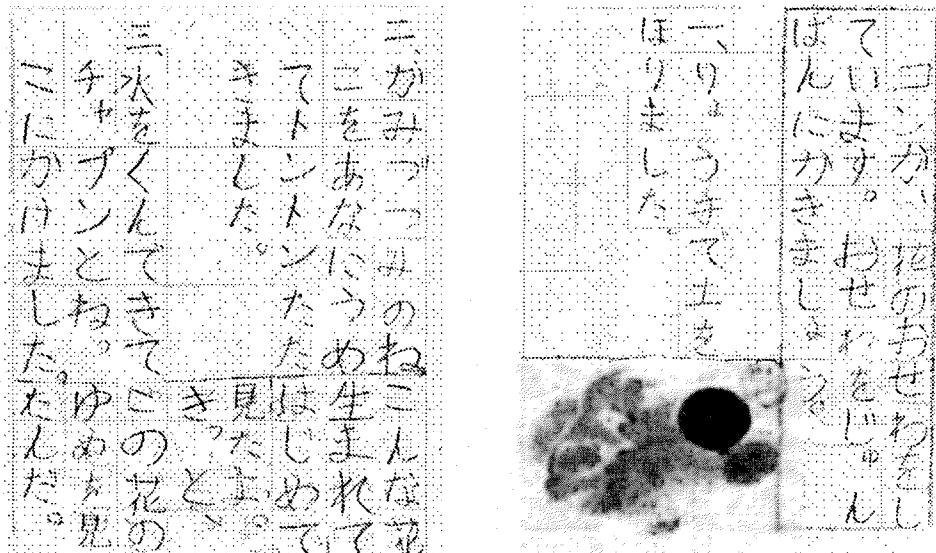 コンが、花のおせわをし
ています。おせわをじゅん
ばんにかきましょう。
一、りょうきで、土を
ほりました。
二、かみづつみのね
こをあなにうめ
てトントンたた
きました。
三、水をくんできて
チャプンとね。っ
こにかけました。
こんな花
生まれて
はじめて
見たよ。
きっと、
この花の
ゆめを見
たんだ。